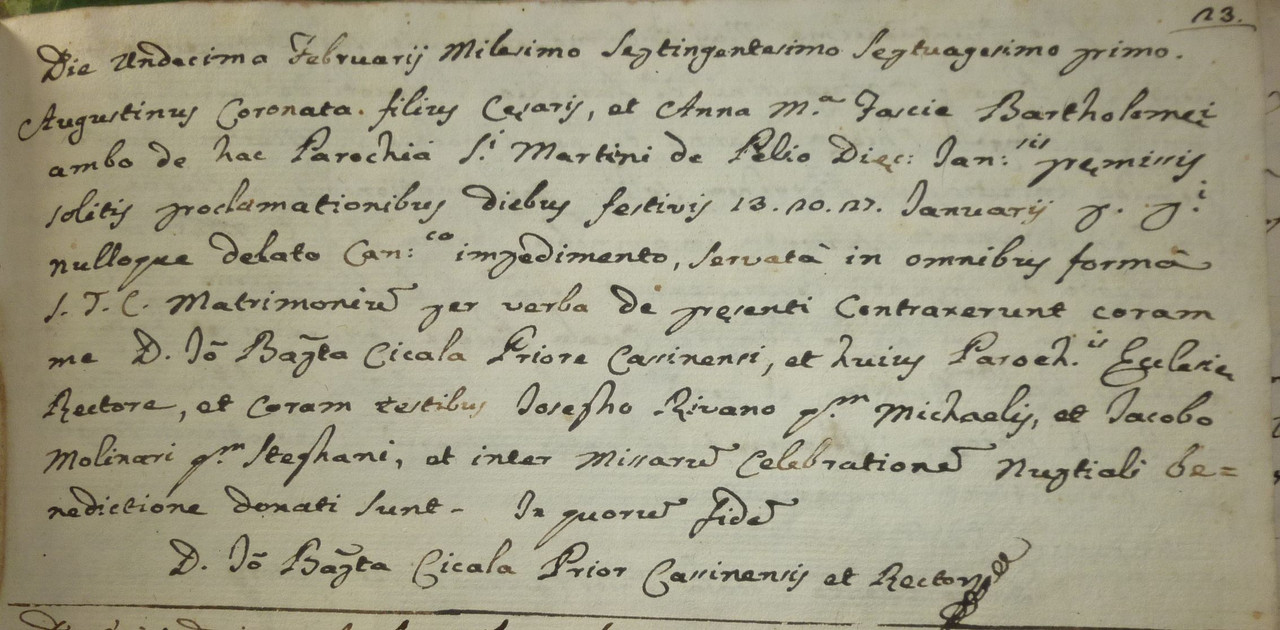 23.
Die Undecima Februarij Milesimo Septingentesimo Septuagesimo primo.
Augustinus Coronata. filius Cęsaris, et Anna M.ª Fascie Bartholomęi
ambo de hac Parochiâ S.ⁱ Martini de Pelio Dięc: Ian:ˢⁱˢ pręmissis
solitis proclamationibus diebus festivis 13. 20. 27. Ianuarij p. p.ⁱ
nulloque delato Can:ᶜᵒ impedimento, servatâ in omnibus formâ
S. T. C. Matrimoniū per verba de pręsenti Contraxerunt coram
me D. Iō Bap̄ta Cicala Priore Casinensi, et huius Paroch.ⁱˢ Ecclesię
Rectore, et Coram testibus Iosepho Rivano q.ᵐ Michaelis, et Iacobo
Molinari q.ᵐ Stephani, et inter Missarū Celebrationē Nuptiali be=
nedictione donati sunt - In quorū fidē
D. Iō Bap̄ta Cicala Prior Cassinensis et Rector